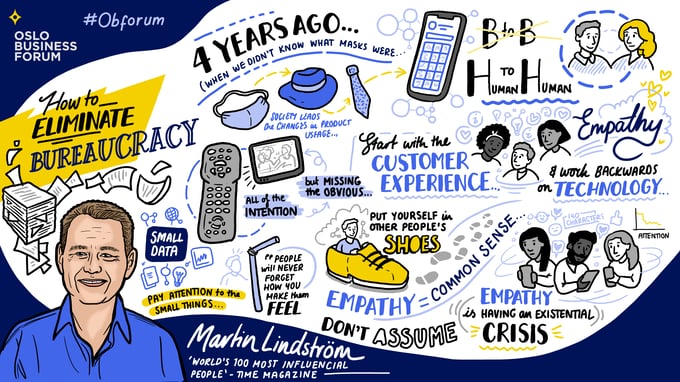 OSLO
BUSINESS
FORUM
#Obforum
How to
ELIMINATE
BUREAUCRACY
4 YEARS AGO...
(WHEN WE DIDN'T KNOW WHAT MASKS WERE...
SOCIETY LEADS
the CHANGES in PRODUCT
USAGE...
B to B
H TO H
HUMAN HUMAN
Start with the
CUSTOMER
EXPERIENCE...
Empathy
& work BACKWARDS
on TECHNOLOGY...
ALL of the
INTENTION
but MISSING
the OBVIOUS...
SMALL
DATA
PAY ATTENTION to the
SMALL THINGS...
"PEOPLE
will NEVER
FORGET
HOW YOU
MAKE them
FEEL
PUT YOURSELF in
OTHER PEOPLE'S
SHOES
EMPATHY = COMMON SENSE...
DON'T ASSUME
140
CHARACTERS
ATTENTION
EMPATHY
is HAVING an EXISTENTIAL
CRISIS
Martin Lindström
'WORLD'S 100 MOST INFLUENCIAL
PEOPLE' - TIME MAGAZINE